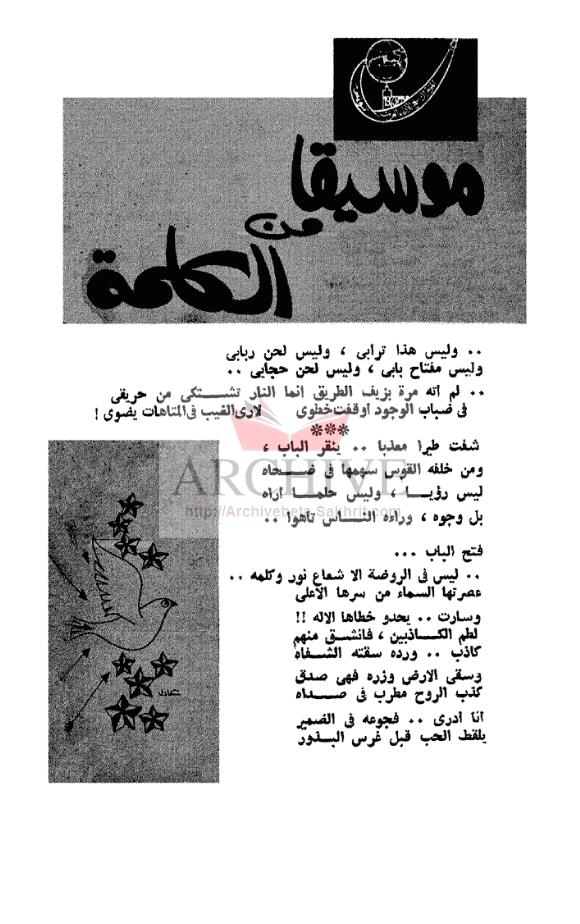 موسيقا
من
الكلمة
.. وليس هذا ترابى ، وليس لحن ربابى
وليس مفتاح بابى ، وليس لحن حجابى ..
.. لم أته مرة بزيف الطريق انما النار تشتكى من حريقى
فى ضباب الوجود أوقفت خطوى لارى الغيب فى المتاهات يضوى !
***
شفت طيرا معذبا .. ينقر الباب ،
ومن خلفه القوس سهمها فى ضحاه
ليس رؤيا ، وليس حلما أراه
بل وجوه ، وراءه الناس تاهوا ..
فتح الباب ...
.. ليس فى الروضة الا شعاع نور وكلمه ..
عصرتها السماء من سرها الأعلى
وسارت .. يحدو خطاها الاله !!
لطم الكاذبين ، فانشق منهم
كاذب .. ورده سقته الشفاه
وسقى الارض وزره فهى صدق
كذب الروح مطرب فى صداه
أنا أدرى .. فجوعه فى الضمير
يلقط الحب قبل غرس البذور
ARCHIVE
http://Archivebeta.Sakhrit.com